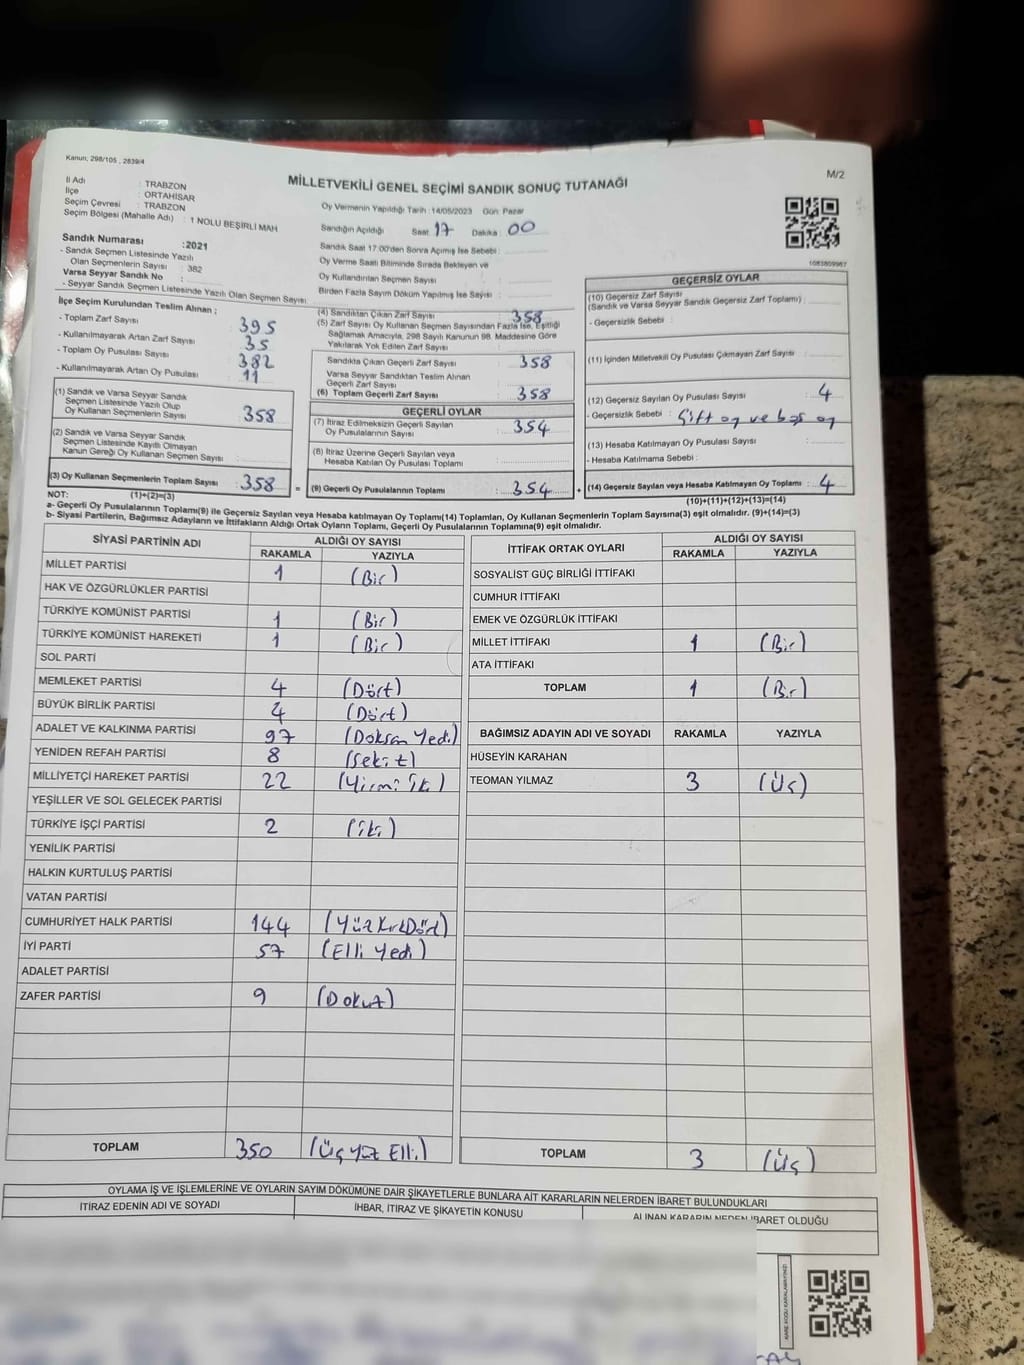 Kanun; 298/105 , 2839/4
M/2
MİLLETVEKİLİ GENEL SEÇİMİ SANDIK SONUÇ TUTANAĞI
İl Adı : TRABZON
İlçe : ORTAHİSAR
Seçim Çevresi : TRABZON
Seçim Bölgesi (Mahalle Adı) : 1 NOLU BEŞİRLİ MAH
Sandık Numarası :2021
- Sandık Seçmen Listesinde Yazılı
Olan Seçmenlerin Sayısı : 382
Varsa Seyyar Sandık No :
- Seyyar Sandık Seçmen Listesinde Yazılı Olan Seçmen Sayısı
Oy Vermenin Yapıldığı Tarih :14/05/2023 Gün: Pazar
Sandığın Açıldığı Saat : 17 Dakika : 00
Sandık Saat 17.00'den Sonra Açımış İse Sebebi :
Oy Verme Saati Bitiminde Sırada Bekleyen ve
Oy Kullandırılan Seçmen Sayısı
Birden Fazla Sayım Döküm Yapılmış İse Sayısı :
1083809967
İlçe Seçim Kurulundan Teslim Alınan ;
- Toplam Zarf Sayısı : 395
- Kullanılmayarak Artan Zarf Sayısı : 35
- Toplam Oy Pusulası Sayısı : 382
- Kullanılmayarak Artan Oy Pusulası : 11
(1) Sandık ve Varsa Seyyar Sandık
Seçmen Listesinde Yazılı Olup
Oy Kullanan Seçmenlerin Sayısı : 358
(2) Sandık ve Varsa Seyyar Sandık
Seçmen Listesinde Kayıtlı Olmayan
Kanun Gereği Oy Kullanan Seçmen Sayısı :
(3) Oy Kullanan Seçmenlerin Toplam Sayısı : 358 =
(1)+(2)=(3)
(4) Sandıktan Çıkan Zarf Sayısı : 358
(5) Zarf Sayısı Oy Kullanan Seçmen Sayısından Fazla İse, Eşitliği
Sağlamak Amacıyla, 298 Sayılı Kanunun 98. Maddesine Göre
Yakılarak Yok Edilen Zarf Sayısı :
Sandıkta Çıkan Geçerli Zarf Sayısı : 358
Varsa Seyyar Sandıktan Teslim Alınan
Geçerli Zarf Sayısı :
(6) Toplam Geçerli Zarf Sayısı : 358
GEÇERLİ OYLAR
(7) İtiraz Edilmeksizin Geçerli Sayılan
Oy Pusulalarının Sayısı : 354
(8) İtiraz Üzerine Geçerli Sayılan veya
Hesaba Katılan Oy Pusulası Toplamı :
(9) Geçerli Oy Pusulalarının Toplamı : 354 +
GEÇERSİZ OYLAR
(10) Geçersiz Zarf Sayısı
(Sandık ve Varsa Seyyar Sandık Geçersiz Zarf Toplamı) :
- Geçersizlik Sebebi :
(11) İçinden Milletvekili Oy Pusulası Çıkmayan Zarf Sayısı :
(12) Geçersiz Sayılan Oy Pusulası Sayısı : 4
- Geçersizlik Sebebi : Çift oy ve boş oy
(13) Hesaba Katılmayan Oy Pusulası Sayısı :
- Hesaba Katılmama Sebebi :
(14) Geçersiz Sayılan veya Hesaba Katılmayan Oy Toplamı : 4
(10)+(11)+(12)+(13)=(14)
NOT:
a- Geçerli Oy Pusulalarının Toplamı(9) ile Geçersiz Sayılan veya Hesaba Katılmayan Oy Toplamı(14) Toplamları, Oy Kullanan Seçmenlerin Toplam Sayısına(3) eşit olmalıdır. (9)+(14)=(3)
b- Siyasi Partilerin, Bağımsız Adayların ve İttifakların Aldığı Ortak Oyların Toplamı, Geçerli Oy Pusulalarının Toplamına(9) eşit olmalıdır.
SİYASİ PARTİNİN ADI ALDIĞI OY SAYISI
RAKAMLA YAZIYLA
MİLLET PARTİSİ 1 (Bir)
HAK VE ÖZGÜRLÜKLER PARTİSİ
TÜRKİYE KOMÜNİST PARTİSİ 1 (Bir)
TÜRKİYE KOMÜNİST HAREKETİ 1 (Bir)
SOL PARTİ
MEMLEKET PARTİSİ 4 (Dört)
BÜYÜK BİRLİK PARTİSİ 4 (Dört)
ADALET VE KALKINMA PARTİSİ 97 (Doksan Yedi)
YENİDEN REFAH PARTİSİ 8 (Sekiz)
MİLLİYETÇİ HAREKET PARTİSİ 22 (Yirmi İki)
YEŞİLLER VE SOL GELECEK PARTİSİ
TÜRKİYE İŞÇİ PARTİSİ 2 (İki)
YENİLİK PARTİSİ
HALKIN KURTULUŞ PARTİSİ
VATAN PARTİSİ
CUMHURİYET HALK PARTİSİ 144 (Yüz Kırk Dört)
İYİ PARTİ 57 (Elli Yedi)
ADALET PARTİSİ
ZAFER PARTİSİ 9 (Dokuz)
TOPLAM 350 (Üç Yüz Elli)
İTTİFAK ORTAK OYLARI ALDIĞI OY SAYISI
RAKAMLA YAZIYLA
SOSYALİST GÜÇ BİRLİĞİ İTTİFAKI
CUMHUR İTTİFAKI
EMEK VE ÖZGÜRLÜK İTTİFAKI
MİLLET İTTİFAKI 1 (Bir)
ATA İTTİFAKI
TOPLAM 1 (Bir)
BAĞIMSIZ ADAYIN ADI VE SOYADI RAKAMLA YAZIYLA
HÜSEYİN KARAHAN
TEOMAN YILMAZ 3 (Üç)
TOPLAM 3 (Üç)
OYLAMA İŞ VE İŞLEMLERİNE VE OYLARIN SAYIM DÖKÜMÜNE DAİR ŞİKAYETLERLE BUNLARA AİT KARARLARIN NELERDEN İBARET BULUNDUKLARI
İTİRAZ EDENİN ADI VE SOYADI İHBAR, İTİRAZ VE ŞİKAYETİN KONUSU ALINAN KARARIN NEDEN İBARET OLDUĞU